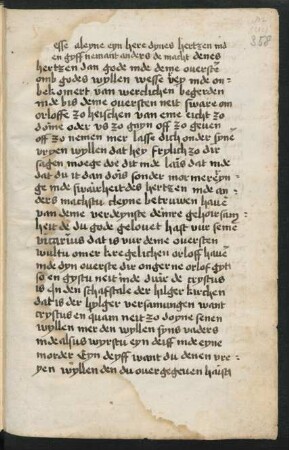 358
esse aleyne eyn here dynes hertzen ind
en gyff nemant anders de macht denes
hertzen dan gode inde deme oversten
omb godes wyllen wesse vry inde on
bekomert van wereltlichen begerden
inde bis deme oversten neit sware om
orloffe zo heischen van eme eicht zo
doine oder us zo gayn off zo geuen
off zo nemen mer lasse dich onder syne
vryen wyllen dat hey frylich zo dir
sagen moege doe dit inde lais dat inde
dat du it dan dois sonder mormereyn
ge inde swairheit des hertzen inde an
ders machstu cleyne betruwen haven
van deme verdeynste deinre gehoirsam
heit de du gode gelouet hast vur seme
vicarius dat is vur deme oversten
wultu omer kregelichen orloff haven
inde dyn overste dir ongerne orlof gyft
so en gystu neit inde duir de crystus
is in den schafstale der hilger kirchen
dat is der hylger versamungen want
crystus en quam neit zo doyne senen
wyllen mer den wyllen syns vaders
inde alsus wyrstu eyn deiff inde eyne
morder Eyn deyff want du denen vre
yen wyllen den du overgegeuen haist